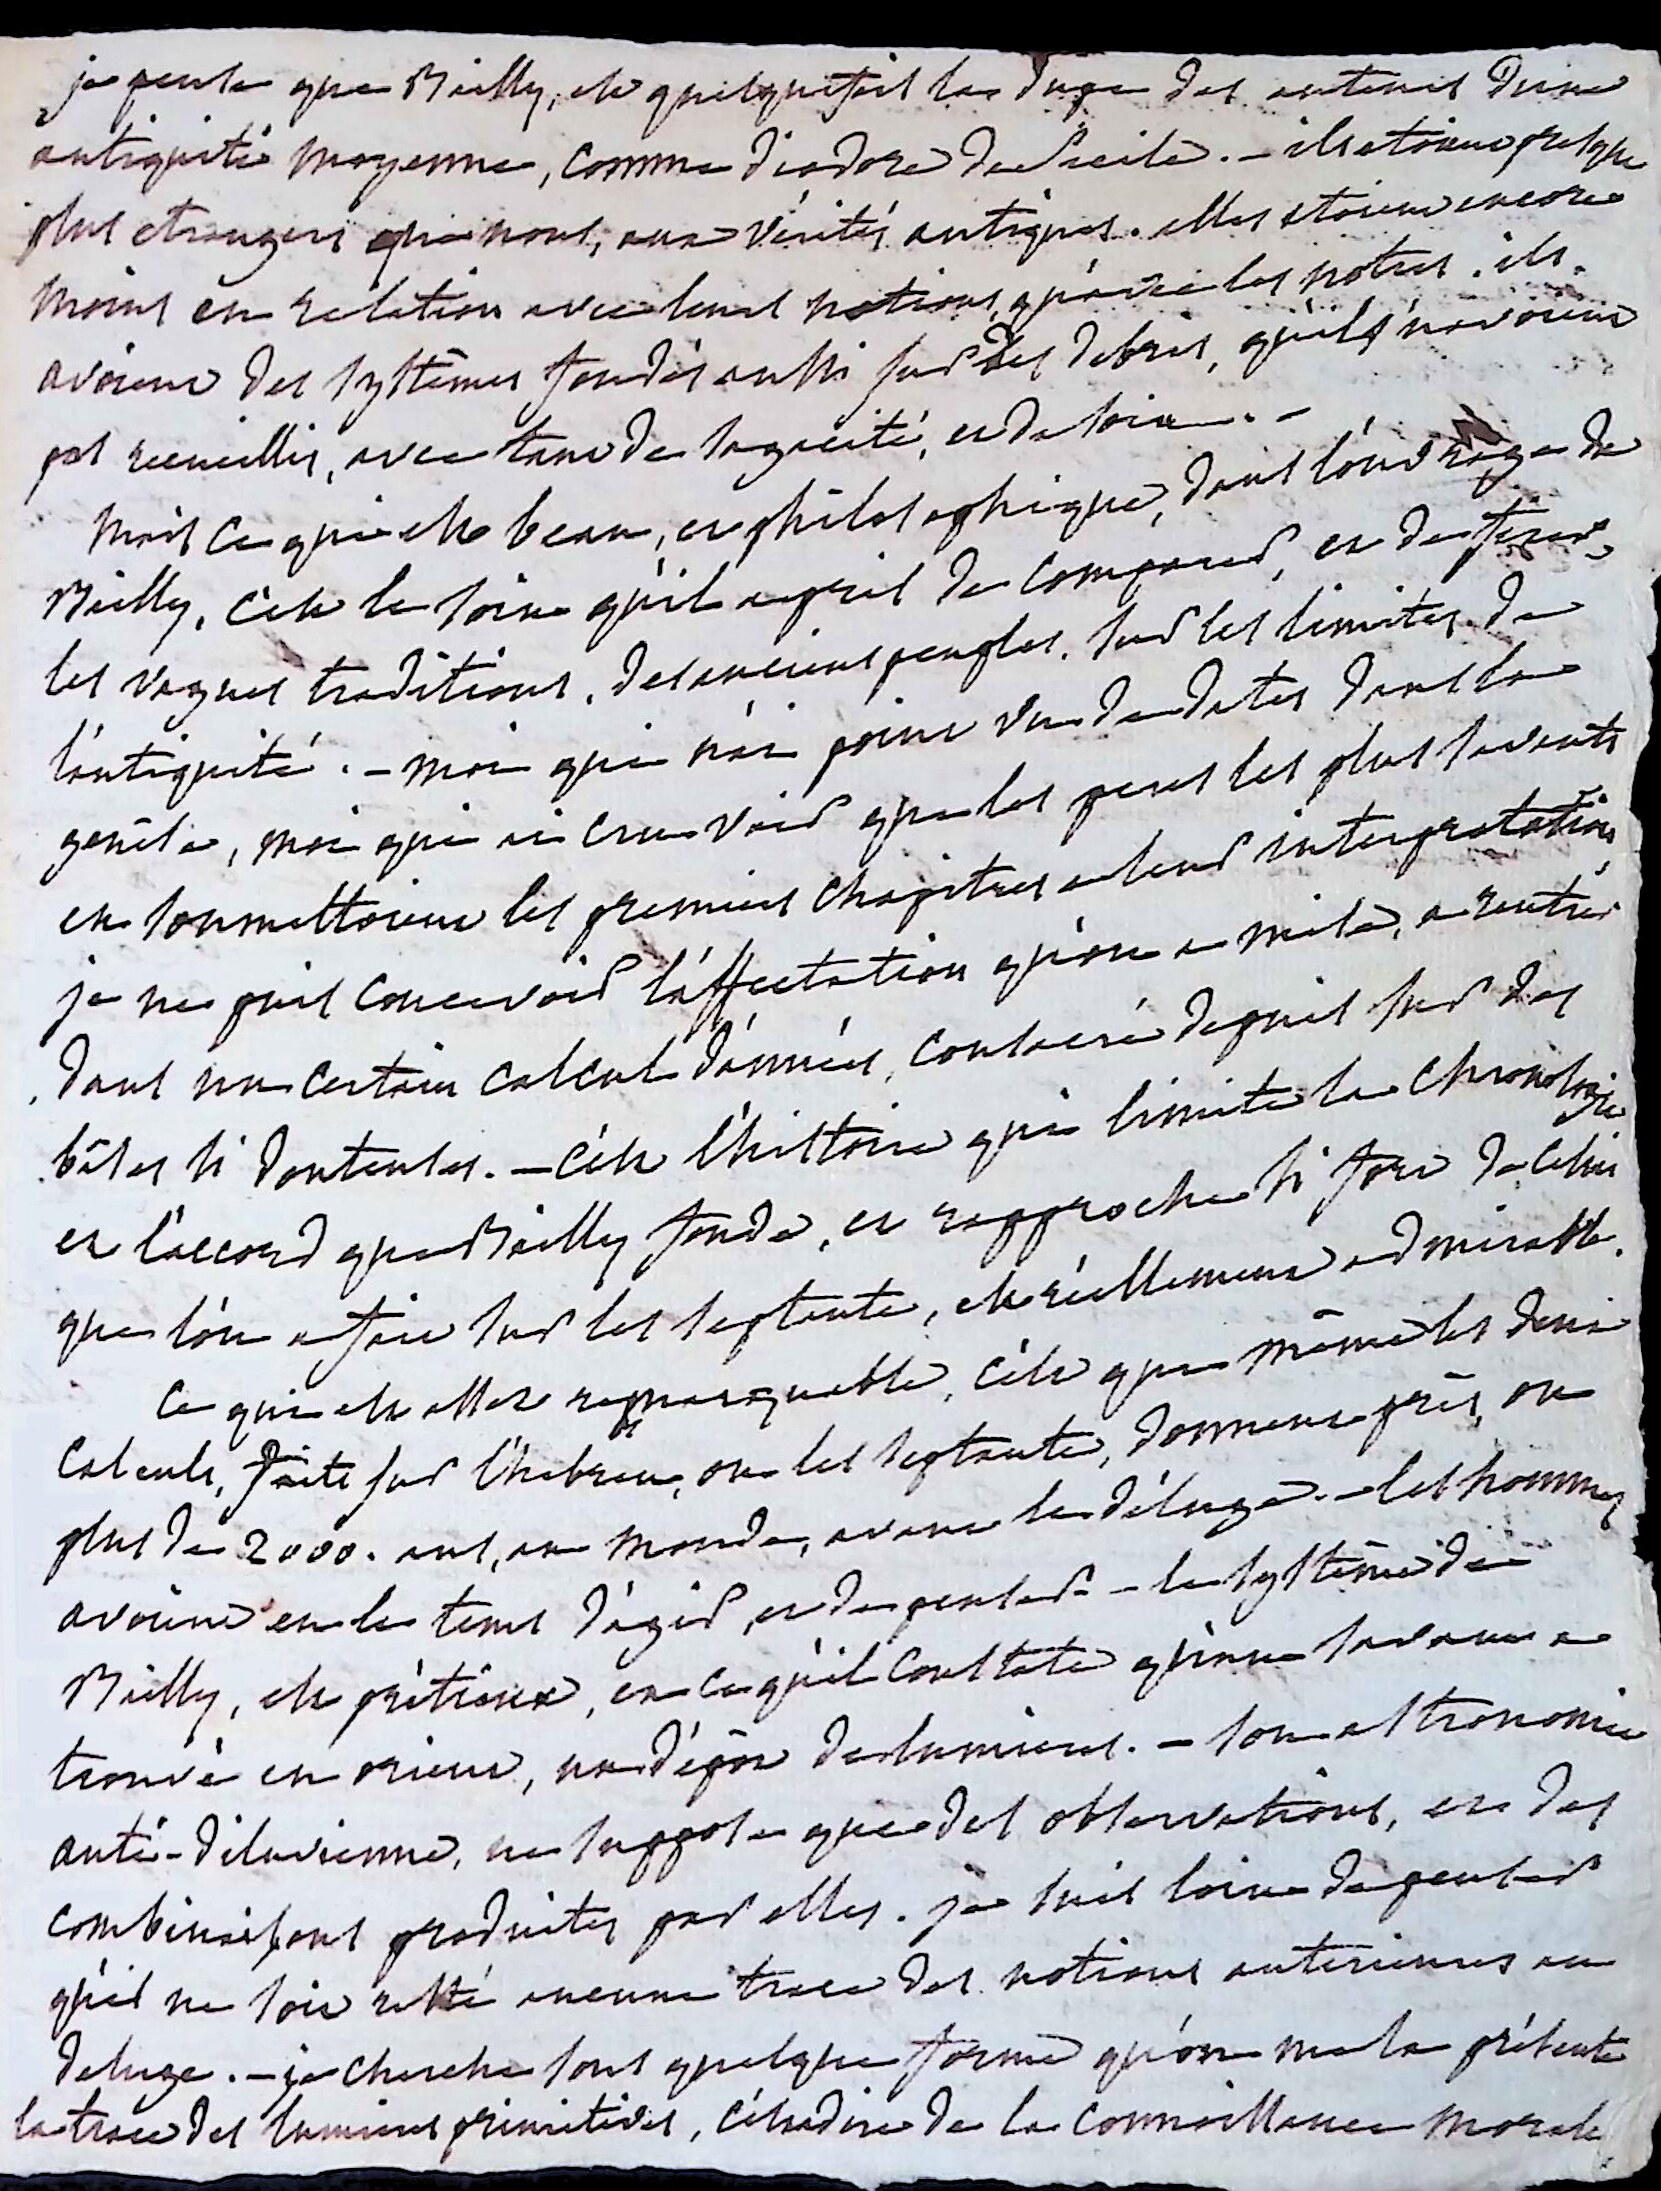 je pense que Bailly, est quelquefois la dupe des auteurs d'une
antiquité moyenne, comme diodore de Sicile. – ils etoient presque
plus etrangers que nous, aux vérités antiques. elles etoient encore
moins en relation avec leurs notions, qu'avec les notres. ils
avoient des systêmes fondés aussi sur des debris, qu'ils n'avoient
pas recueillis, avec tant de sagacité, et de soin. –
Mais ce qui est beau, et philosophique, dans l'ouvrage de
Bailly, c'est le soin qu'il a pris de comparer, et de fixer
les vagues traditions, des anciens peuples, sur les limites de
l'antiquité. – moi qui n'ai point vu de dates dans la
genèse, moi qui ai cru voir que les peres les plus savants
en soumettoient les premiers chapitres a leur interpretation,
je ne puis concevoir l'affectation qu'on a mise, a rentrer
dans un certain calcul d'années, consacré depuis sur des
bâses si douteuses. – c'est l'histoire qui limite la chronologie
et l'accord que Bailly fonde, et rapproche si fort de celui
que l'on a fait sur les septante, est réellement admirable.
Ce qui est assez remarquable, c'est que même les deux
calculs, faits sur l'hebreu, ou les septante, donnent près, ou
plus de 2000. ans, au monde, avant le déluge. – les hommes
avoient eu le tems d'agir, et de penser – le systême de
Bailly, est prétieux, en ce qu'il constate qu'un savant a
trouvé en orient, un dépôt de lumieres. – son astronomie
anté-diluvienne, ne suppose que des observations, et des
combinaisons produites par elles. je suis loin de penser
qu'il ne soit resté aucune trace des notions anterieures au
deluge. – je cherche sous quelque forme qu'on me la présente
la trace des lumieres primitives, c'est a dire de la connoissance morale